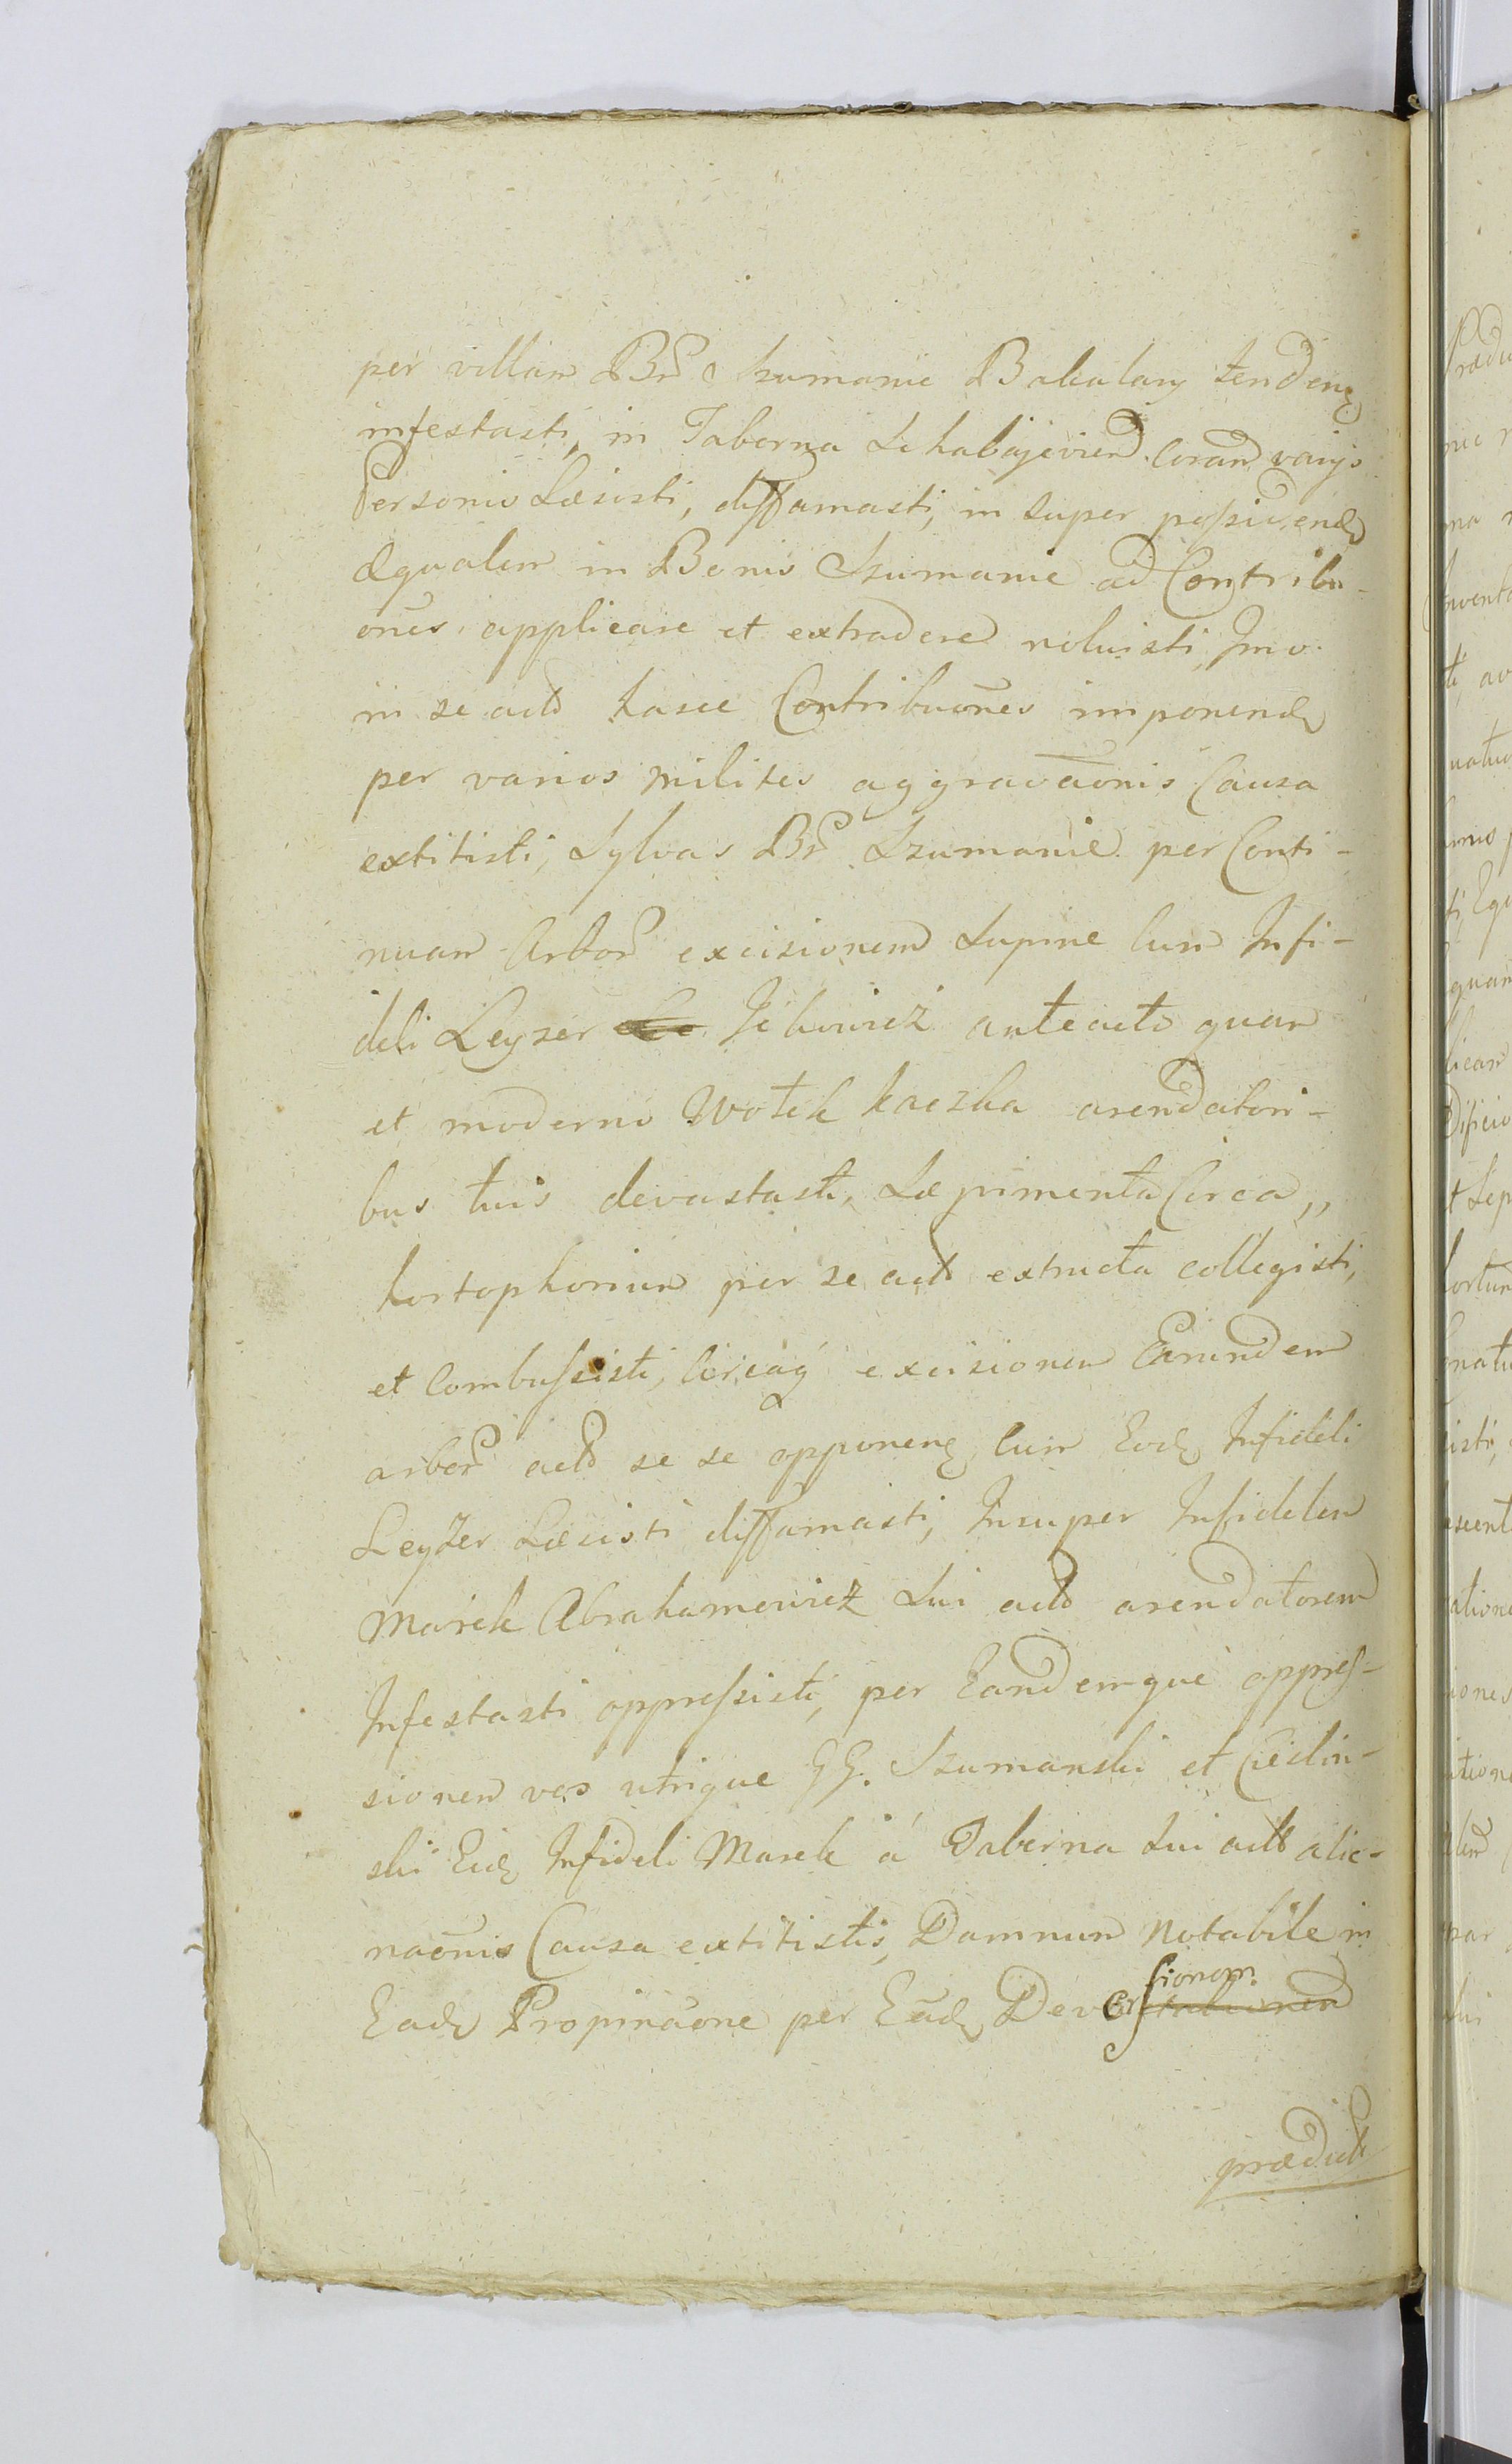 per villam Bnr Szumanie Bakalary tendenę
infestasti, in Taberna Lchabajeviend. Coram varijs
Personis Læsisti, diffamasti, in super possidendę
æqualem in Bonis Szumanie ad Contribu-
ōnes applicare et extradere noluisti, Imo
in se actō hasce Contribuōnes imponendę
per varios milites aggravāonis Causa
extitisti, Sylvas Bnr Szumanie per Conti-
nuam Arborr excisionem Supine Cum Infi-
deli Leyzer Ickowicz anteacto quam
et moderno Wołek kaczka arendatori-
bus tuis devastasti, Sæpimenta Circa,,
hortophorium per se actō extructa collegisti,
et Combussisti, Circaq́ excisionem Earundem
arborr actō se se opponenę Cum Eodę Infideli
Leyzer Læsisti diffamasti, Insuper Infidelem
Marek Abrahamowicz Sui actō arendatorem
Infestasti oppressisti, per Eandemque oppres-
sionem vos utrique GG. Szumanski et Cieslin-
ski Eidę Infideli Marek á Taberna Sui actō alie-
naōnis Causa extitistis, Damnum Notabile in
Eadę Propināone per Eādę Deversionem
prædict